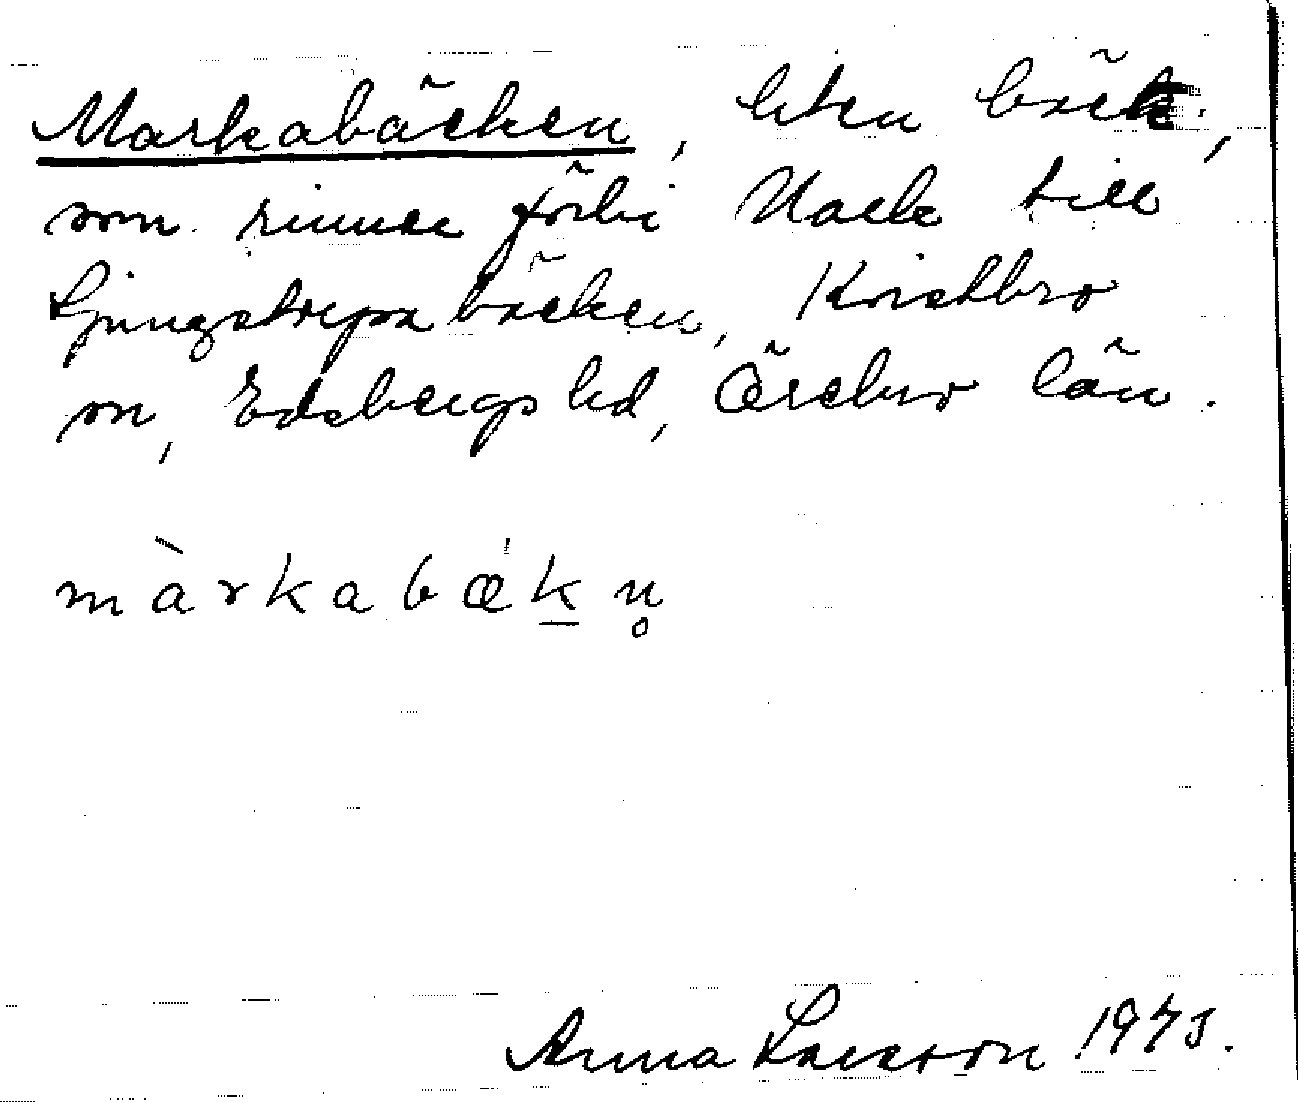 Markabäcken, liten bäck,
som rinner förbi Nack till
Ljungstrepabäcken, Kvistbro
sn, Edsbergs hd, Örebro län.
màrkabǽk̲n̥
Anna Larsson 1975.